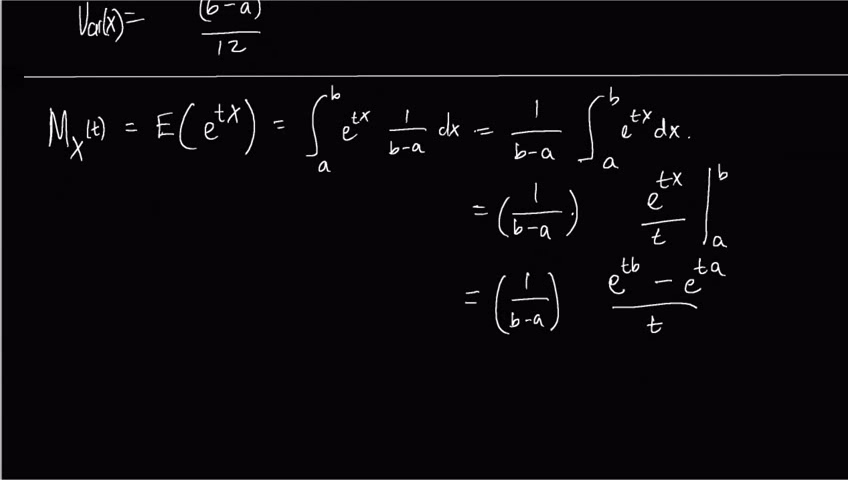 Var(x) = (b-a) / 12
M_X(t) = E(e^{tX}) = ∫_a^b e^{tx} 1/(b-a) dx = 1/(b-a) ∫_a^b e^{tx} dx.
= (1/(b-a)) e^{tx}/t |_a^b
= (1/(b-a)) (e^{tb} - e^{ta})/t